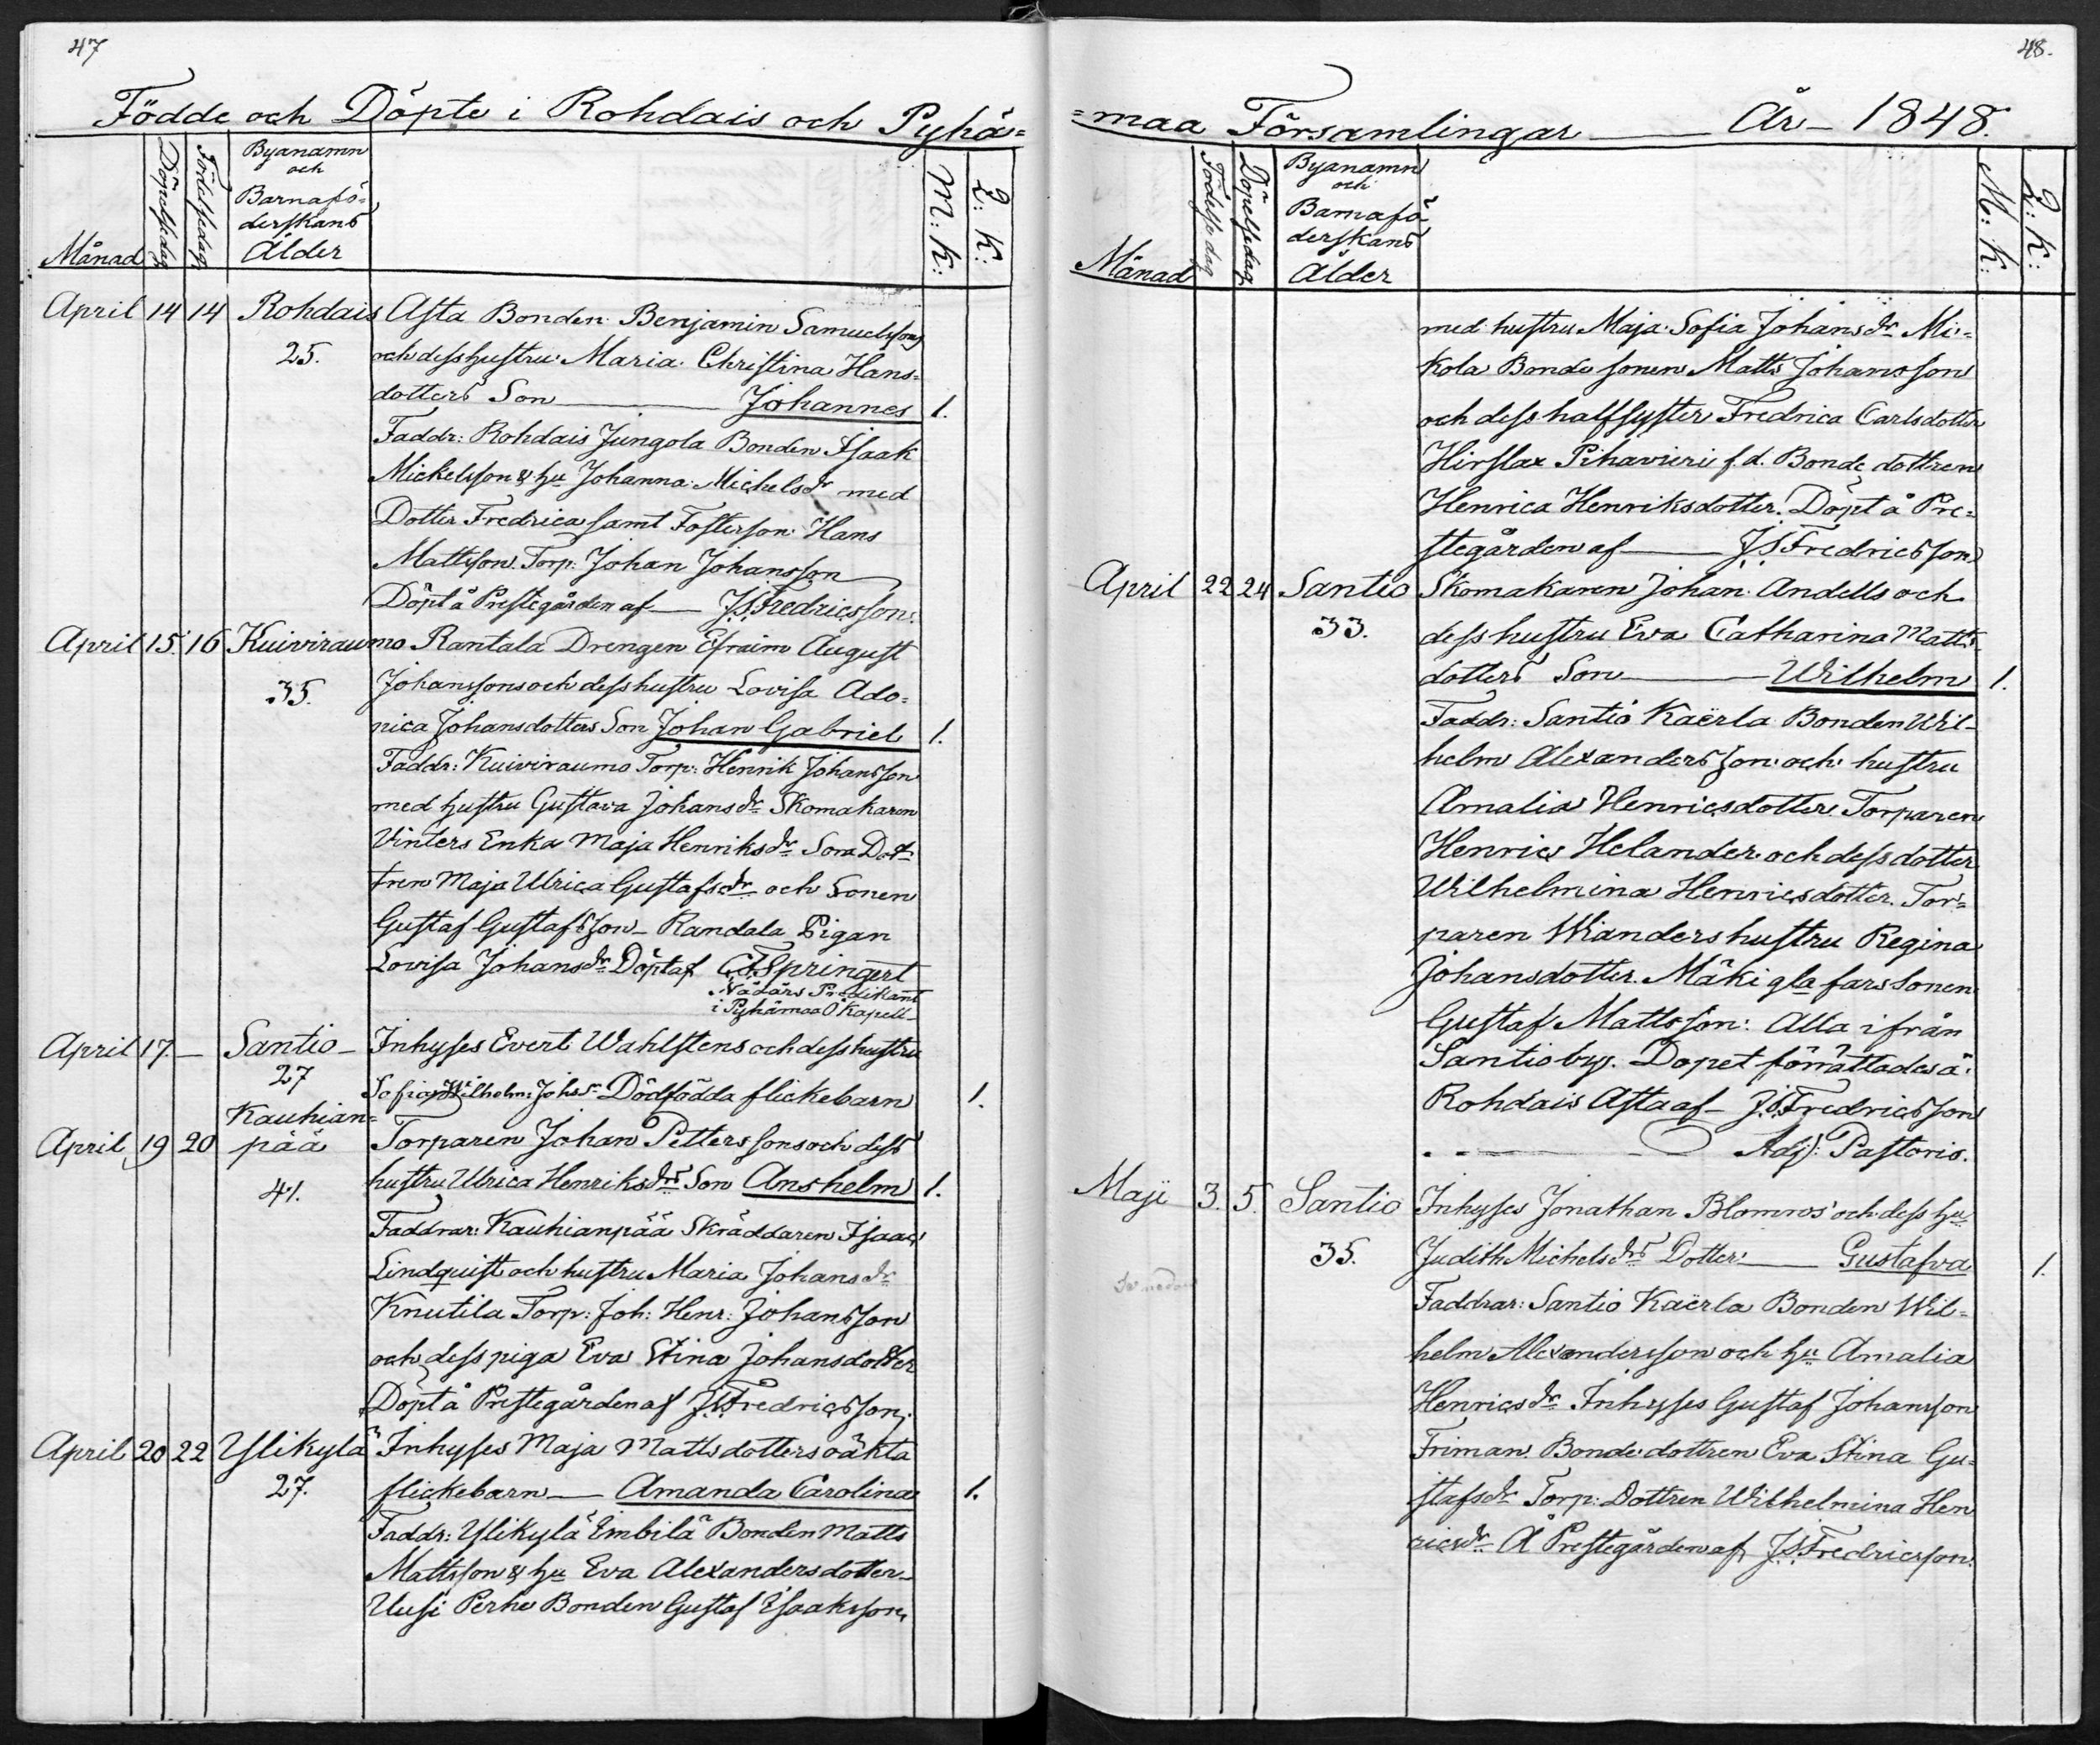 47
Födde och Döpte i Rohdais och Pyhä=
Månad
Döpelsedag
Födelsedag
Byanamn
och
Barnafö=
derskans
Ålder
M: K:
Q: K:
April 14 14 Rohdais Asta Bonden Benjamin Samuelssons
25. och dess hustru Maria Christina Hans=
dotters Son Johannes 1.
Faddr: Rohdais Jungola Bonden Isaak
Mickelsson & hu Johanna Michelsdr med
Dotter Fredrica samt Fosterson Hans
Mattsson. Torp: Johan Johansson
Döpt å Prestegården af J.S.Fredricsson.
April 15. 16 Kuiviraumo Rantala Drengen Efraim August
35. Johanssons och dess hustru Lovisa Ado=
nica Johansdotters Son Johan Gabriel 1.
Faddr: Kuiviraumo Torp: Henrik Johansson
med hustru Gustava Johansdr Skomakaren
Vinters Enka Maja Henriksdr Sora Dot=
tren Maja Ulrica Gustafsdr och Sonen
Gustaf Gustafsson – Randala Pigan
Lovisa Johansdr Döpt af C.F.Springert
Nådårs Predikant
i Pyhämaa Ö Kapell –
April 17. – Santio – Inhyses Evert Wahlstens och dess hustru
27 Sofia Wilhelm: Johsdr Dödfödda flickebarn 1.
Kauhian=
April 19 20 pää Torparen Johan Petterssons och dess
41. hustru Ulrica Henriksdrs Son Anshelm 1.
Faddrar: Kauhianpää Skräddaren Isaac
Lindquist och hustru Maria Johansdr
Knutila Torp: Joh: Henr: Johansson
och dess piga Eva Stina Johansdotter
Döpt å Prestegården af J.S.Fredricsson.
April 20 22 Ylikylä Inhyses Maja Mattsdotters oäkta
27. flickebarn – Amanda Carolina 1.
Faddr: Ylikylä Eimbilä Bonden Matts
Mattsson & hu Eva Alexandersdotter –
Uusi Perhe Bonden Gustaf Isaksson,
48.
=maa Församlingar – År – 1848.
Månad
Födelsedag
Döpelsedag
Byanamn
och
Barnafö
derskans
Ålder
M: K:
Q: K:
med hustru Maja Sofia Johansdr Mi=
kola Bonde sonen Matts Johansson
och dess halfsyster Fredrica Carlsdotter
Hirslax Pihavieri f.d. Bonde dottren
Henrica Henriksdotter. Döpt å Pre=
stegården af – J.S.Fredricsson
April 22 24 Santio Skomakaren Johan Andells och
33. dess hustru Eva Catharina Matts
dotters Son – Wilhelm 1.
Faddr: Santio Kaërla Bonden Wil=
helm Alexandersson och hustru
Amalia Henricsdotter. Torparen
Henric Helander och dess dotter
Wilhelmina Henricsdotter. Tor=
paren Wianders hustru Regina
Johansdotter. Mäki gla fars sonen
Gustaf Mattsson: Alla ifrån
Santio by. Dopet förrättades å
Rohdais Asta af – J.S.Fredricsson
Adj: Pastoris.
Maji 3. 5. Santio Inhyses Jonathan Blomros och dess hu
35. Judith Michelsdrs Dotter: – Gustafva 1.
Faddrar: Santio Kaërla Bonden Wil=
helm Alexandersson och hu Amalia
Henricsdr Inhyses Gustaf Johansson
Friman. Bonde dottren Eva Stina Gu=
stafsdr Torp: Dottren Wilhelmina Hen
ricsdr Å Prestegården af J.S.Fredricsson.